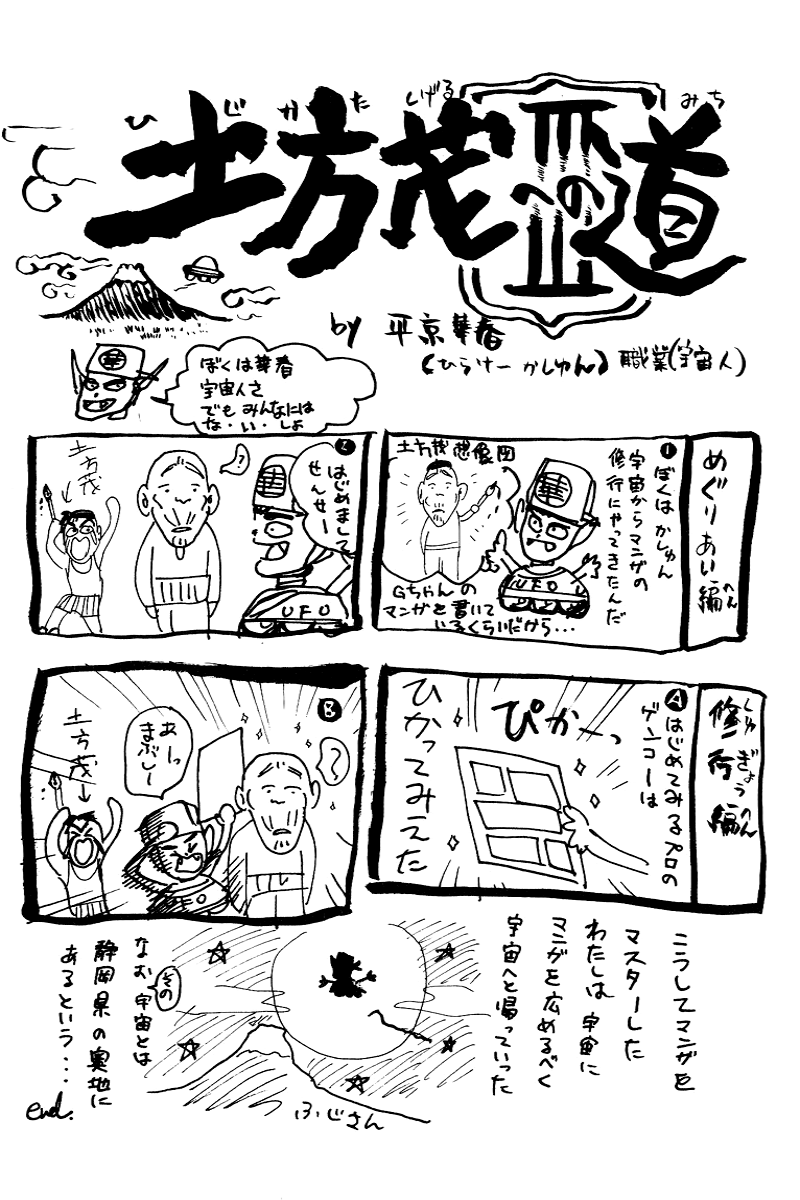 ひじかた しげる みち
土方茂への道
by 平京華春
(ひらけー かしゅん) 職業(宇宙人)
華
ぼくは華春
宇宙人さ
でも みんなには
な・い・しょ
めぐりあい編
へん
1
ぼくは かしゅん
宇宙からマンガの
修行にやってきたんだ
土方茂想像図
華
UFO
Gちゃんの
マンガを書いて
いるくらいだから・・・
2
はじめまして
せんせー
華
UFO
?
土方茂
修行編
しゅ ぎょう へん
A
はじめてみるプロの
ゲンコーは
ぴかーっ
ひかってみえた
B
?
あーっ
まぶしー
土方茂
こうしてマンガを
マスターした
わたしは 宇宙に
マンガを広めるべく
宇宙へと帰っていった
ふじさん
なお その 宇宙とは
静岡県の裏地に
あるという・・・
end.